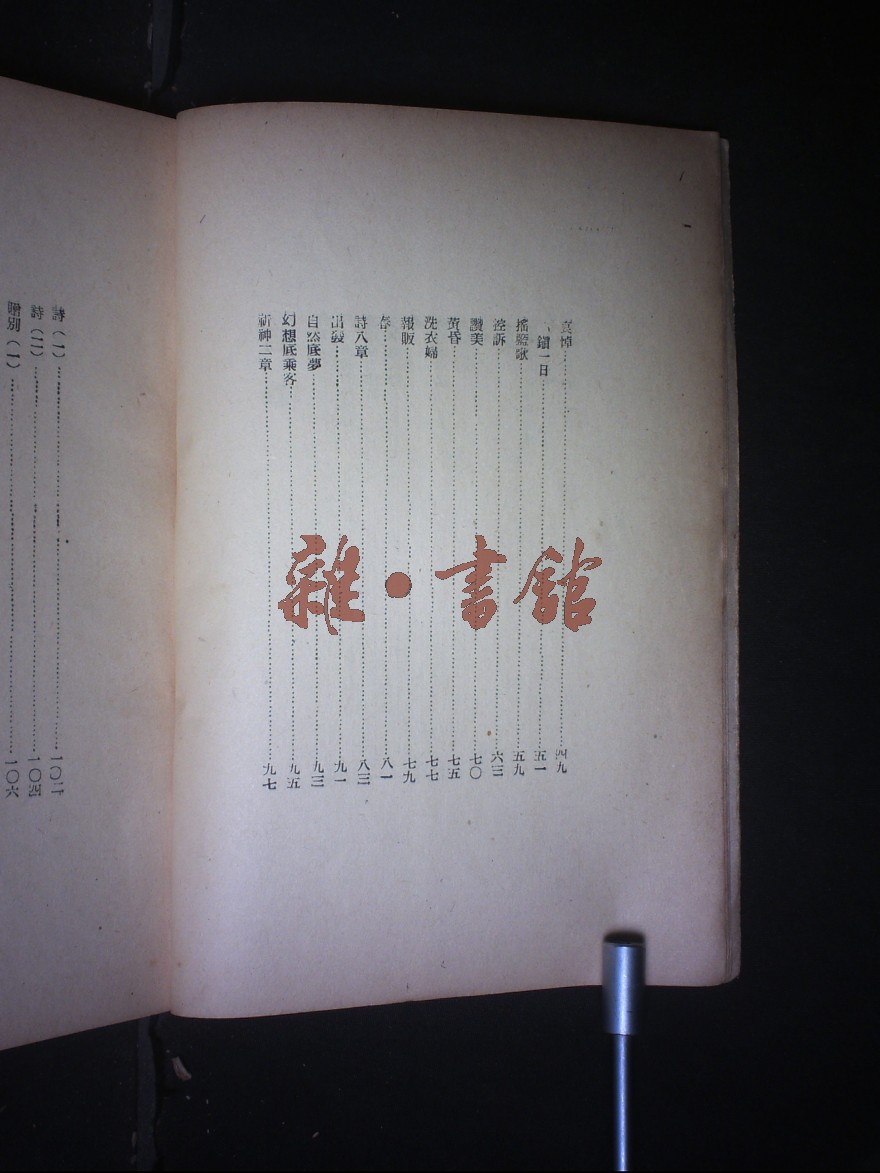 哀悼……四九
鎮一日……五一
搖籃歌……五九
控訴……六三
讚美……七〇
黃昏……七五
洗衣婦……七七
報販……七九
……八一
詩八章……八三
出發……九一
自然底夢……九三
幻想底乘客……九五
祈神二章……九七
詩(一)……一〇二
詩(二)……一〇四
贈別(一)……一〇六
雜•書館